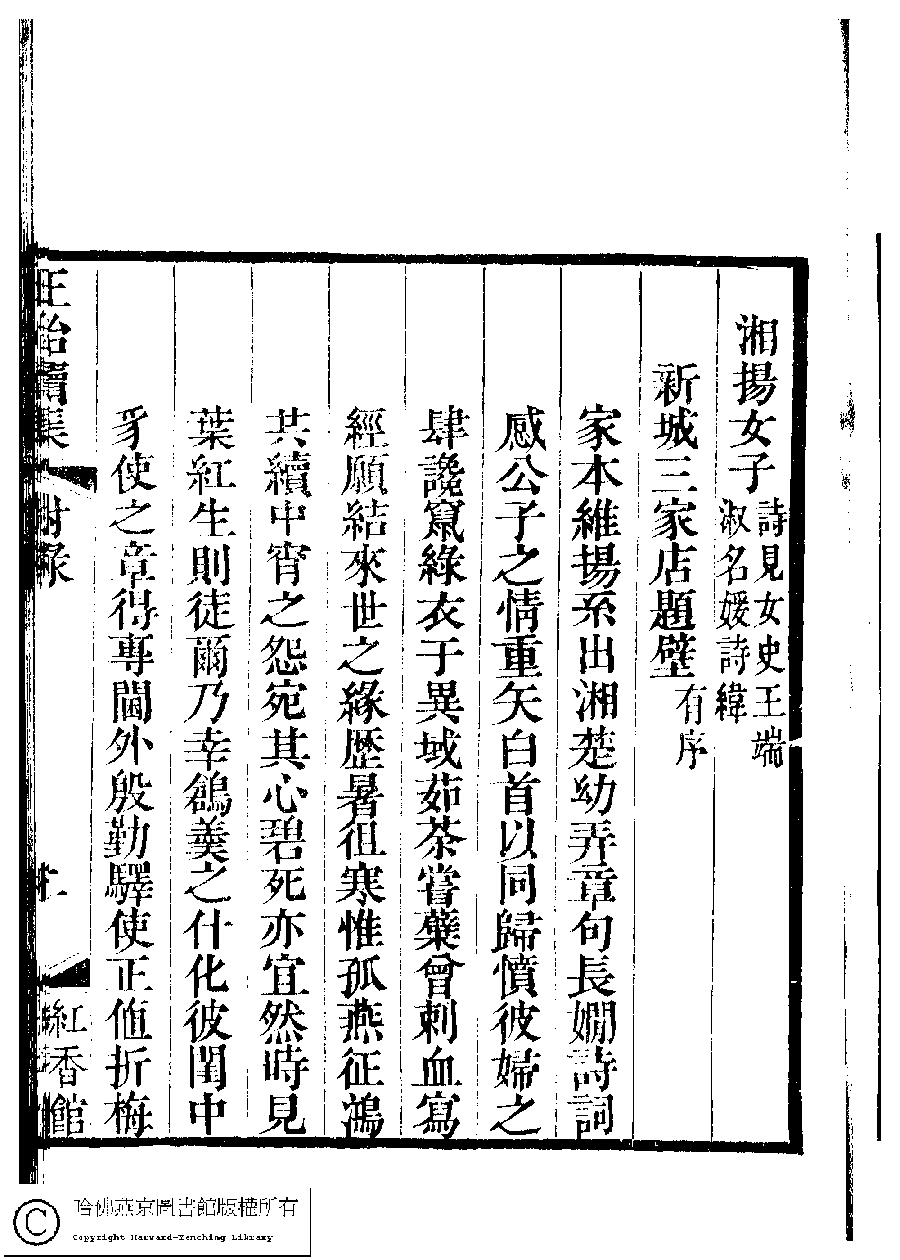 湘揚女子 詩見女史王端
淑名媛詩緯
新城三家店題壁 有序
家本維揚系出湘楚幼弄章句長嫺詩詞
感公子之情重矢白首以同歸憤彼婦之
肆讒竄綠衣于異域茹茶嘗蘗曾刺血寫
經願結來世之緣歷暑徂寒惟孤燕征鴻
共續中宵之怨宛其心碧死亦宜然時見
葉紅生則徒爾乃幸鶬羹之什化彼閨中
豸使之章得專閫外殷勤驛使正値折梅
續集 附錄
紅香館
哈佛燕京圖書館版權所有
Copyright Harvard-Yenching Library